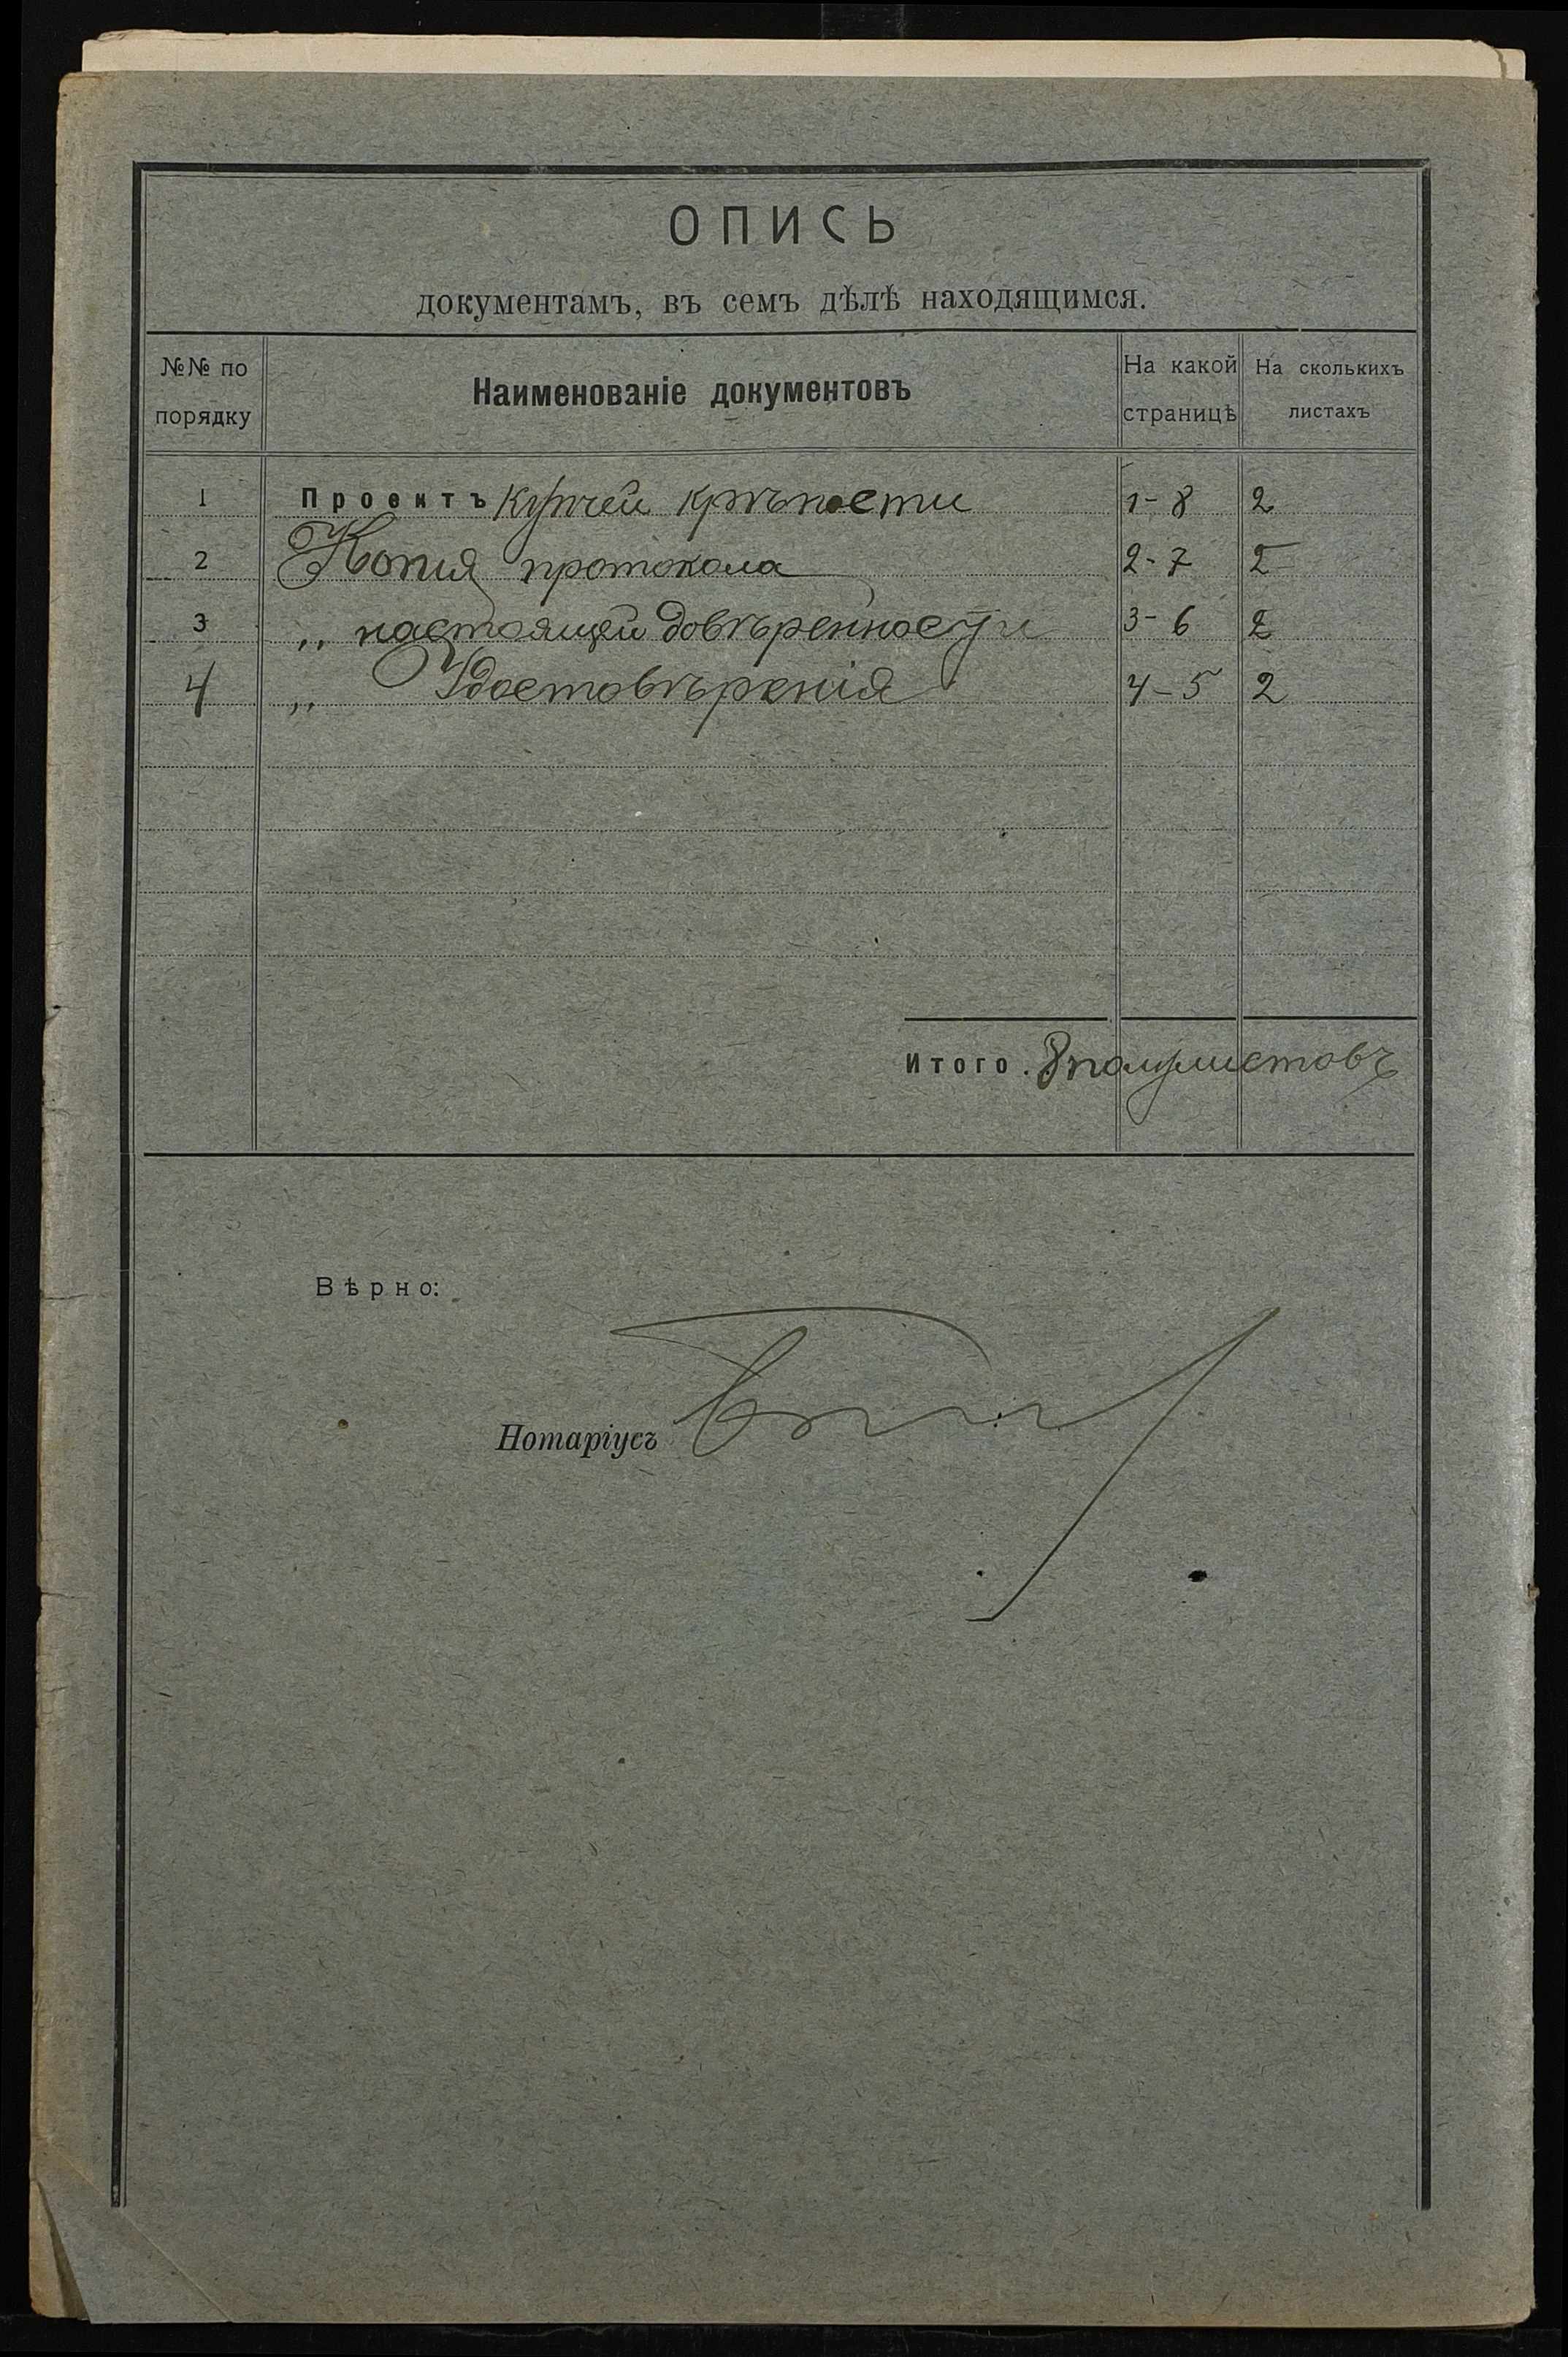 ОПИСЬ
документамъ, въ семъ дѣлѣ находящимся.
№№ по порядку Наименованіе документовъ На какой страницѣ На сколькихъ листахъ
1 Проектъ купчей крѣпости 1-8 2
2 Копия протокола 2-7 2
3 „ настоящей довѣренности 3-6 2
4 „ Удостовѣренія 4-5 2
Итого. 8 полулистовъ
Вѣрно:
Нотаріусъ